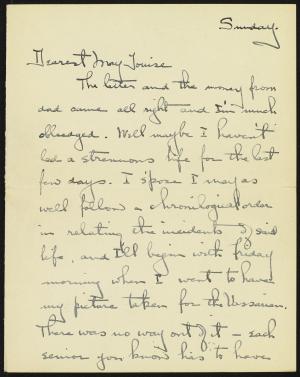 Sunday.
Dearest May Louise
The letter and the money from
dad came all right and I'm much
obleeged. Well maybe I haven't
led a strenuous life for the last
few days. I s'pose I may as
well follow a chronological order
in relating the incidents of said
life, and I'll begin with Friday
morning when I went to have
my picture taken for the
There was no way out of it - each
senior you know has to have